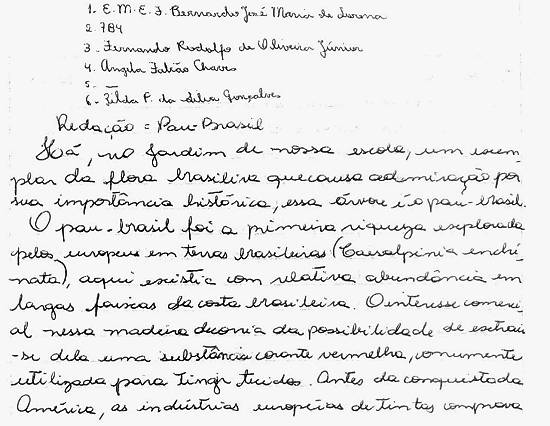 1. E.M.E.F. Bernardo José Maria de Lorena
2. 784
3. Fernando Rodolfo de Oliveira Júnior
4. Angela Falcão Chaves
5. —
6. Zilda P. da Silva Gonçalves
Redação = Pau-Brasil
Há, no jardim de nossa escola, um exem
plar da flora brasileira que causa admiração por
sua importância histórica, essa árvore é o pau-brasil.
O pau-brasil foi a primeira riqueza explorada
pelos europeus em terras brasileiras (Caesalpinia echi
nata), aqui existia com relativa abundância em
largas faixas da costa brasileira. O interesse comerci
al nessa madeira decorria da possibilidade de extrair
-se dela uma substância corante vermelha, comumente
utilizada para tingir tecidos. Antes da conquista da
América, as indústrias européias de tintas comprova